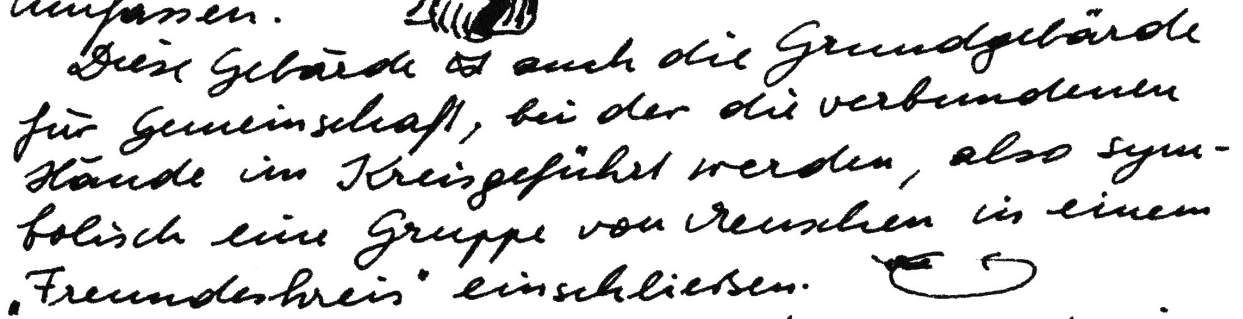 umfassen.
Diese Gebärde ist auch die Grundgebärde
für Gemeinschaft, bei der die verbundenen
Hände im Kreis geführt werden, also sym-
bolisch eine Gruppe von Menschen in einem
„Freundeskreis" einschließen.